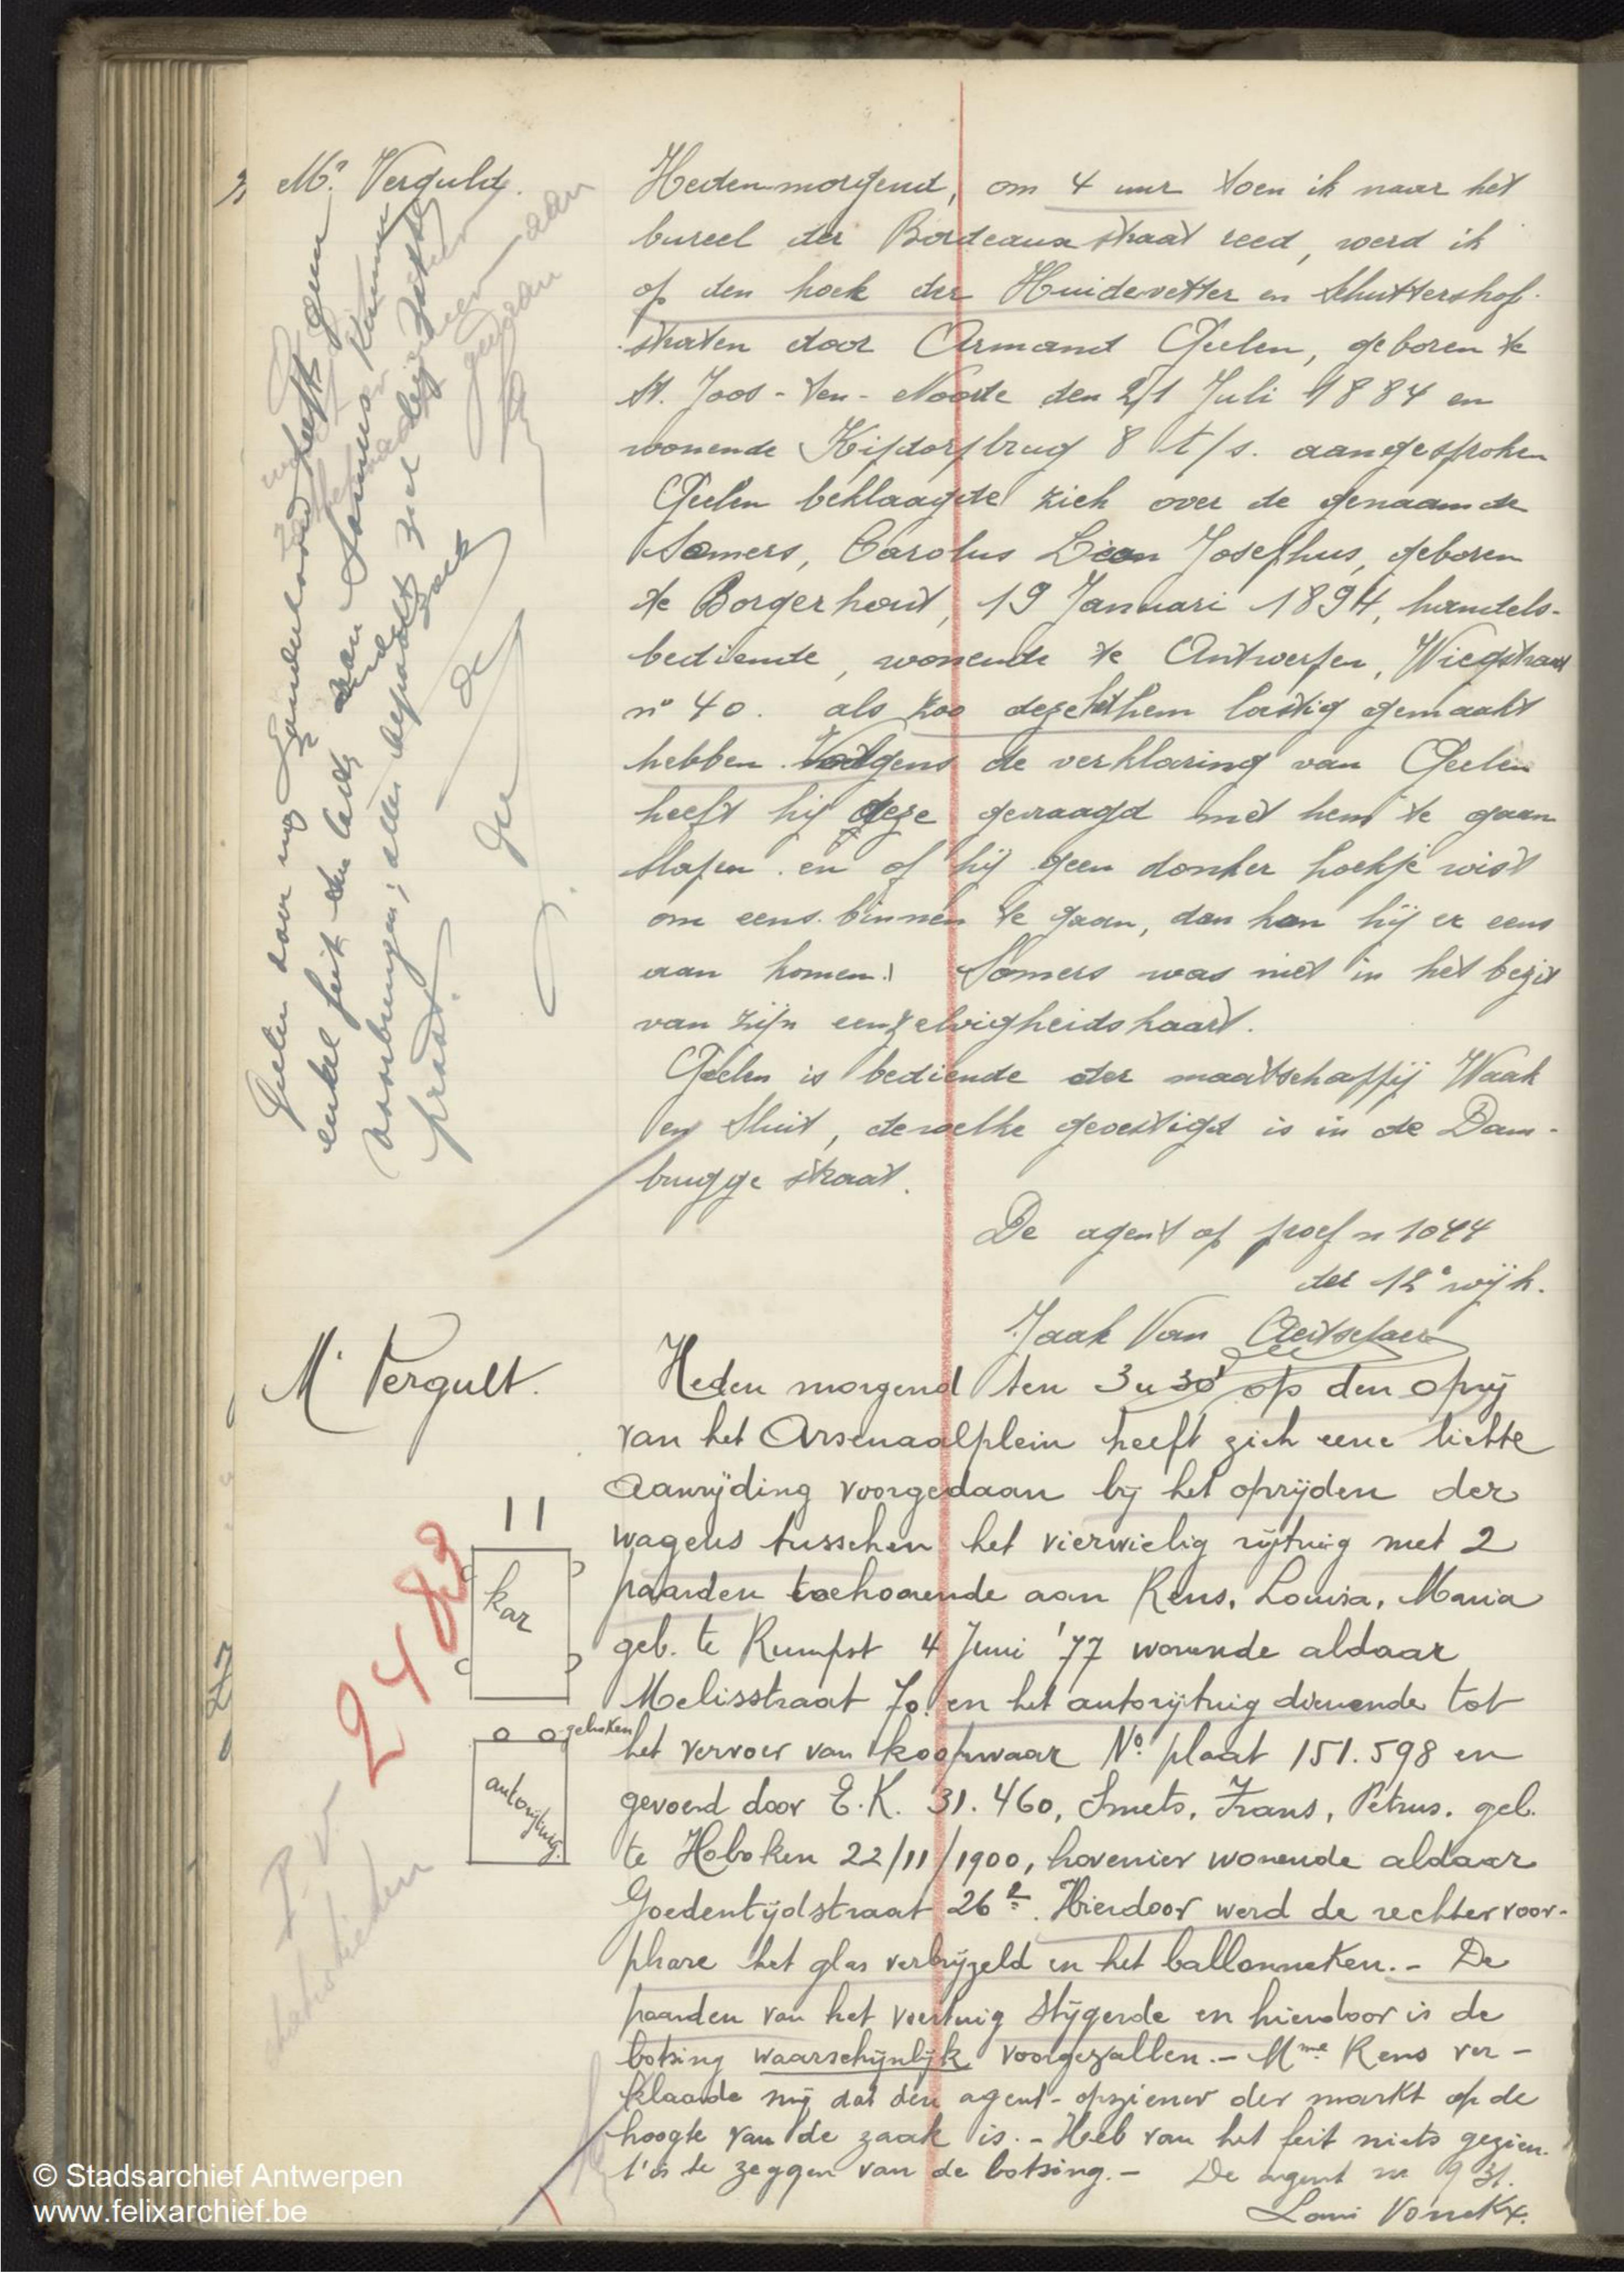 Mr Verguld.
Heden morgend, om 4 uur toen ik naar het
bureel der Bordeaux straat reed, werd ik
op den hoek der Huidevetter en Schuttershof-
straten door Armand Geelen, geboren te
St. Joos-ten-Noode den 21 Juli 1884 en
wonende Kipdorpbrug 8 t/s. aangesproken
Geelen beklaagde zich over de genaamde
Somers, Carolus Leon Josephus, geboren
te Borgerhout, 19 Januari 1894, handels-
bediende, wonende te Antwerpen, Wiegstraat
n° 40. als zoo deze het hem lastig gemaakt
hebben. Volgens de verklaring van Geelen
heeft hij deze gevraagd met hem te gaan
slapen en of hij geen donker hoekje wist
om eens binnen te gaan, dan kon hij er eens
aan komen! Somers was niet in het bezit
van zijn eenzelvigheidskaart.
Geelen is bediende der maatschappij Waak
en Sluit, dewelke gevestigd is in de Dam-
brugge straat.
De agent op proef n 1044
der 12e wijk.
Jaak Van
Geelen door mij heeft geen
enkel feit ten laste van Somers kunnen
voorbrengen; alles bepaalt zich bij
praat.
M Vergult.
Heden morgend ten 3u30' op den oprij
van het Arsenaalplein heeft zich eene lichte
aanrijding voorgedaan bij het oprijden der
wagens tusschen het vierwielig rijtuig met 2
paarden toehoorende aan Rens, Louisa, Maria
geb. te Rumpst 4 Juni '77 wonende aldaar
Molisstraat 70 en het autorijtuig dienende tot
het vervoer van koopwaar No plaat 151.598 en
gevoerd door E.K. 31.460, Smets, Frans, Petrus. geb.
te Hoboken 22/11/1900, hovenier wonende aldaar
Goedentijdstraat 26a. Hierdoor werd de rechtervoor-
phare het glas verbrijzeld en het ballonneken.- De
paarden van het voertuig stijgerde en hierdoor is de
botsing waarschijnlijk voorgevallen.- Mme Rens ver-
klaarde mij dat den agent-opziener der markt op de
hoogte van de zaak is.- Heb van het feit niets gezien.
t'is te zeggen van de botsing.- De agent nr 931.
Loui Vonckx.
kar
gebroken
autorijtuig.
2483
P.V.
© Stadsarchief Antwerpen
www.felixarchief.be